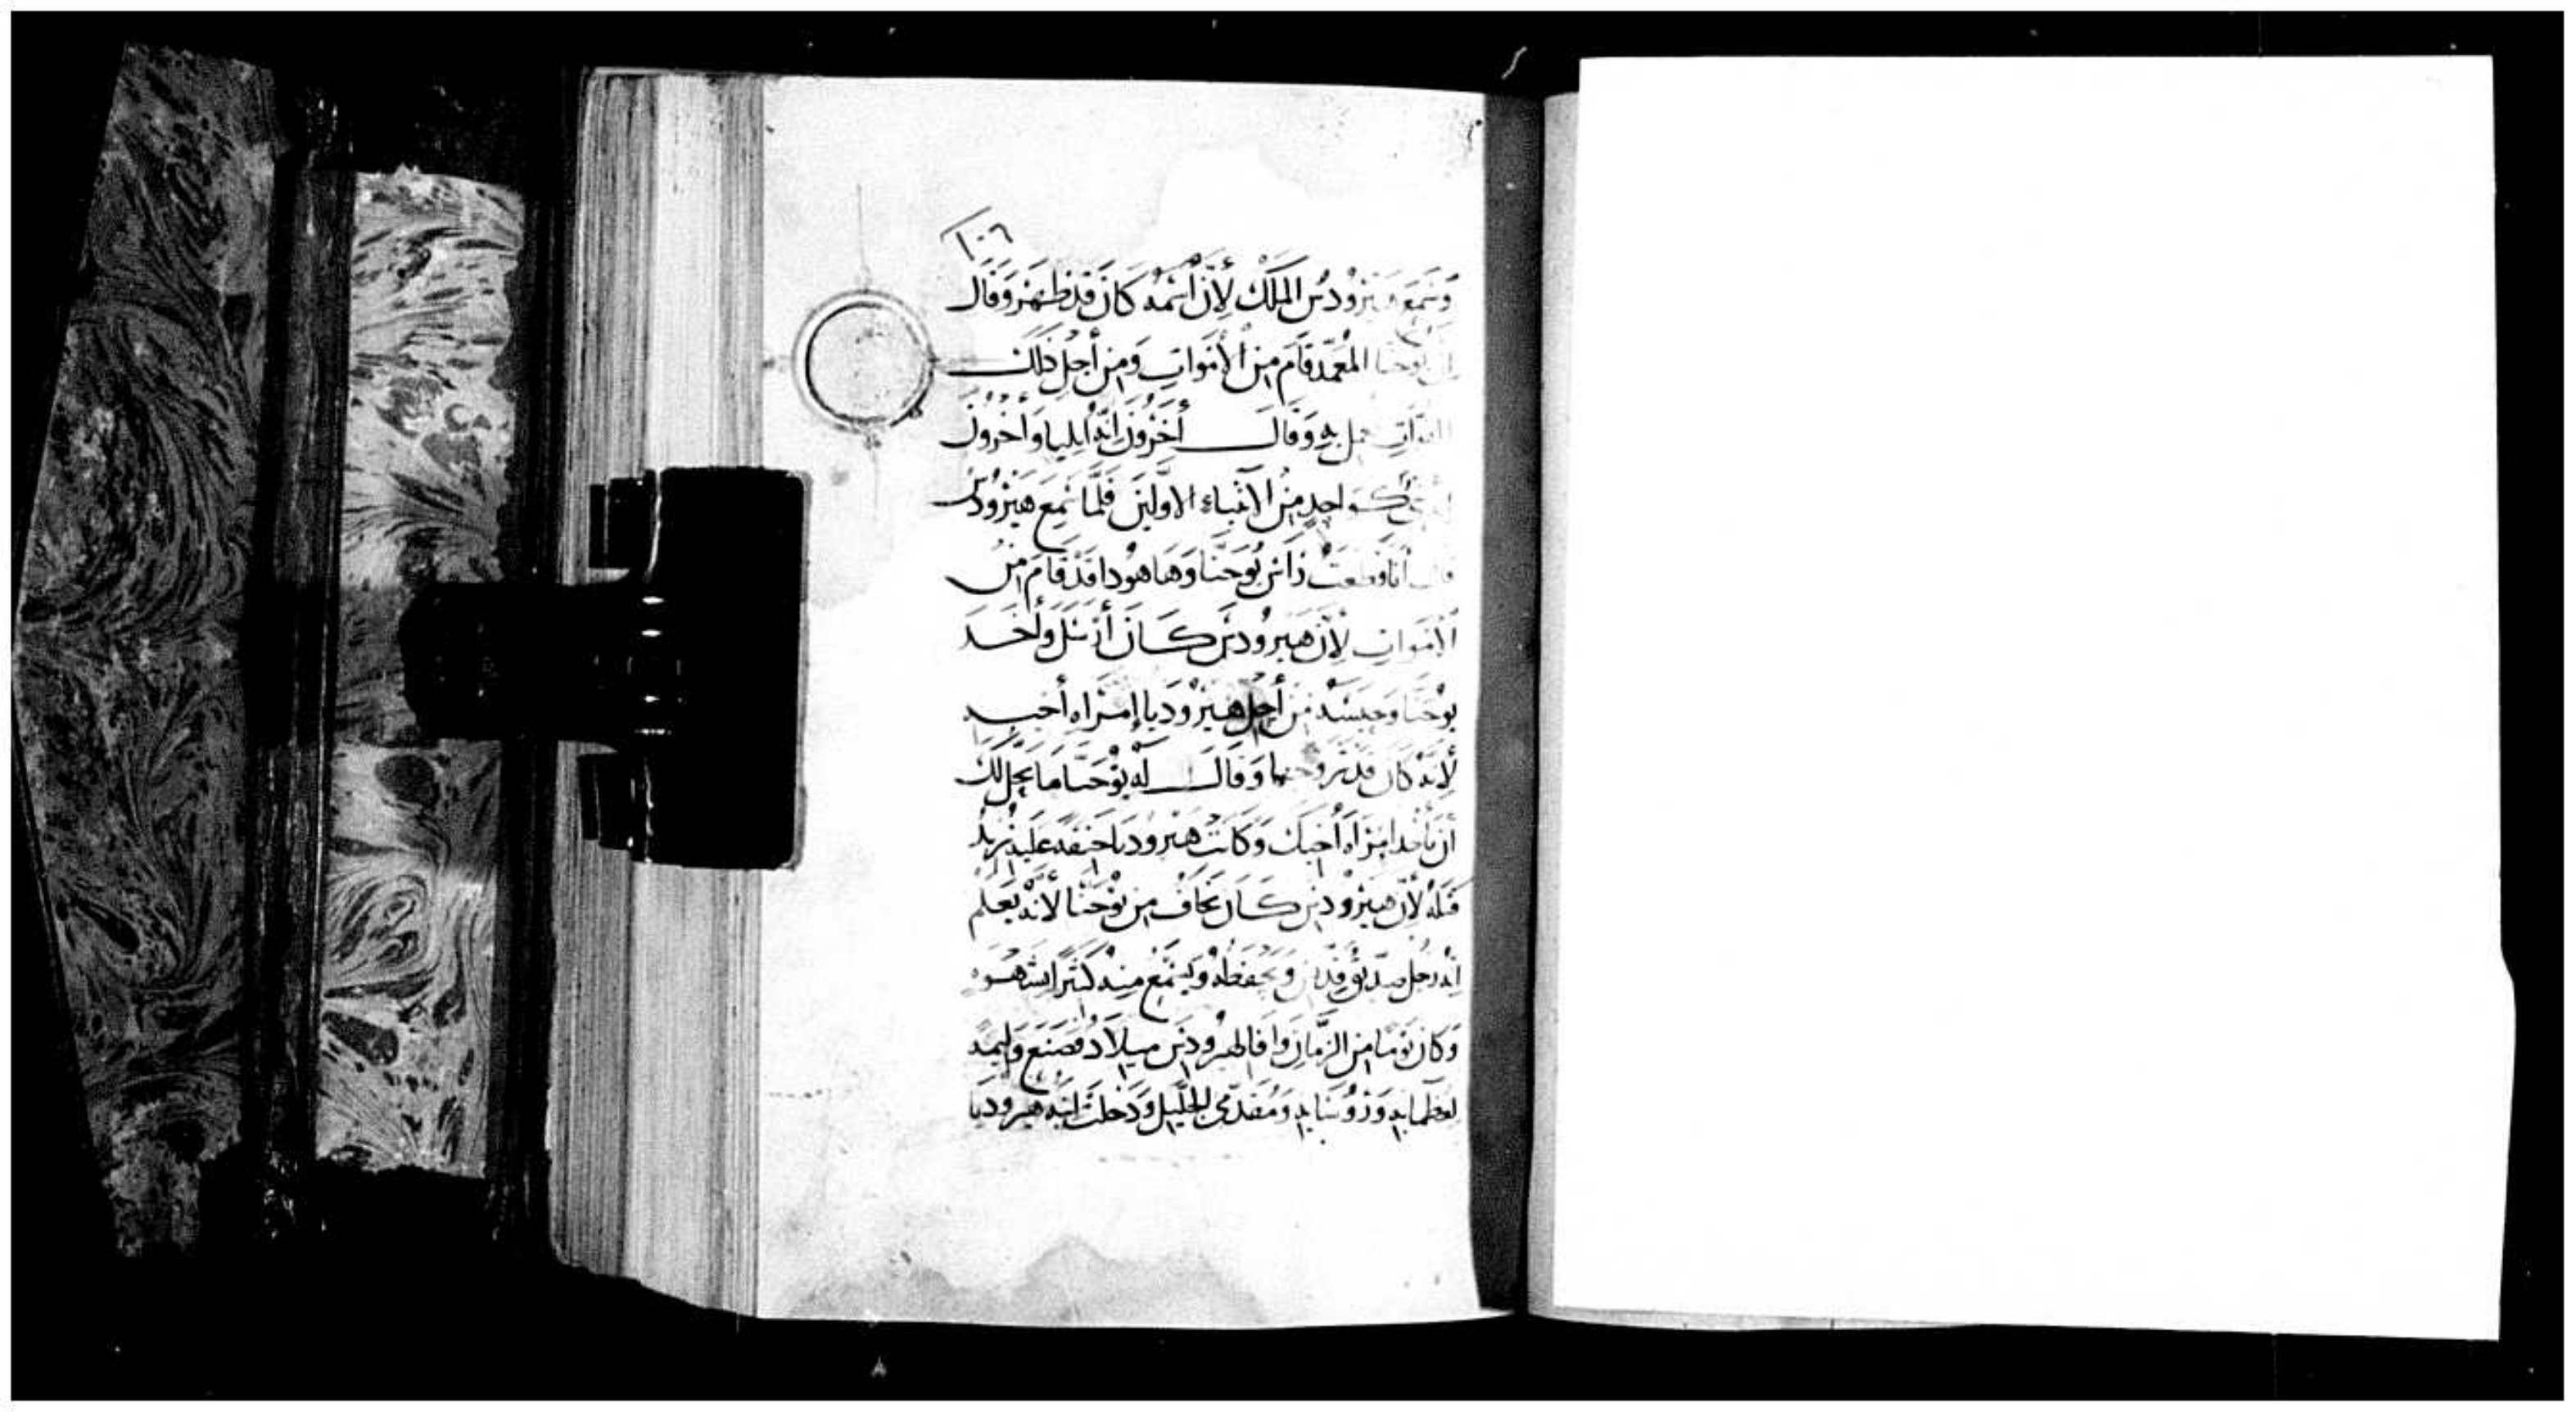 ١٠٦
وَسَمِعَ هيرُودس الملك لأنّ اسْمه كانَ قد ظهر وَقال
يوحنا المعمّد قام من الأمْوات وَمن أجل ذلك
القوات تعمل به وَقال أخرُون انّه ايليا وَأخرون
كواحد من الانبياء الاولين فلمَّا سَمِعَ هيرُودس
قال أنا قطعت رَاس يُوحنا وَها هُودا قدْ قامَ من
الأمْوات لأن هيرودس كان أرْسَل وَأخد
يوْحنا وَحبسَه من أجل هيرُوديا إمرَاه أخيه
لأنه كان قد تزوجها وَقال له يوْحنا مَا يحل لك
أن تأخد امرَاه أخيك وَكانت هيروديا حنقه عليه تريدُ
قتله لأن هيرُودس كان يخاف من يوْحنا لأنه يَعلم
انه رَجل صدّيق قديس وَيحفظه وَيسْمَع منه كثيرًا بشهوه
وَكان يَومًا من الزّمان وَافا لهيرُودس ميلاد فصَنع وَليمه
لعظمايه وَرُؤسَايه وَمُقدّمي الجليل وَدَخلت ابنه هيروديا